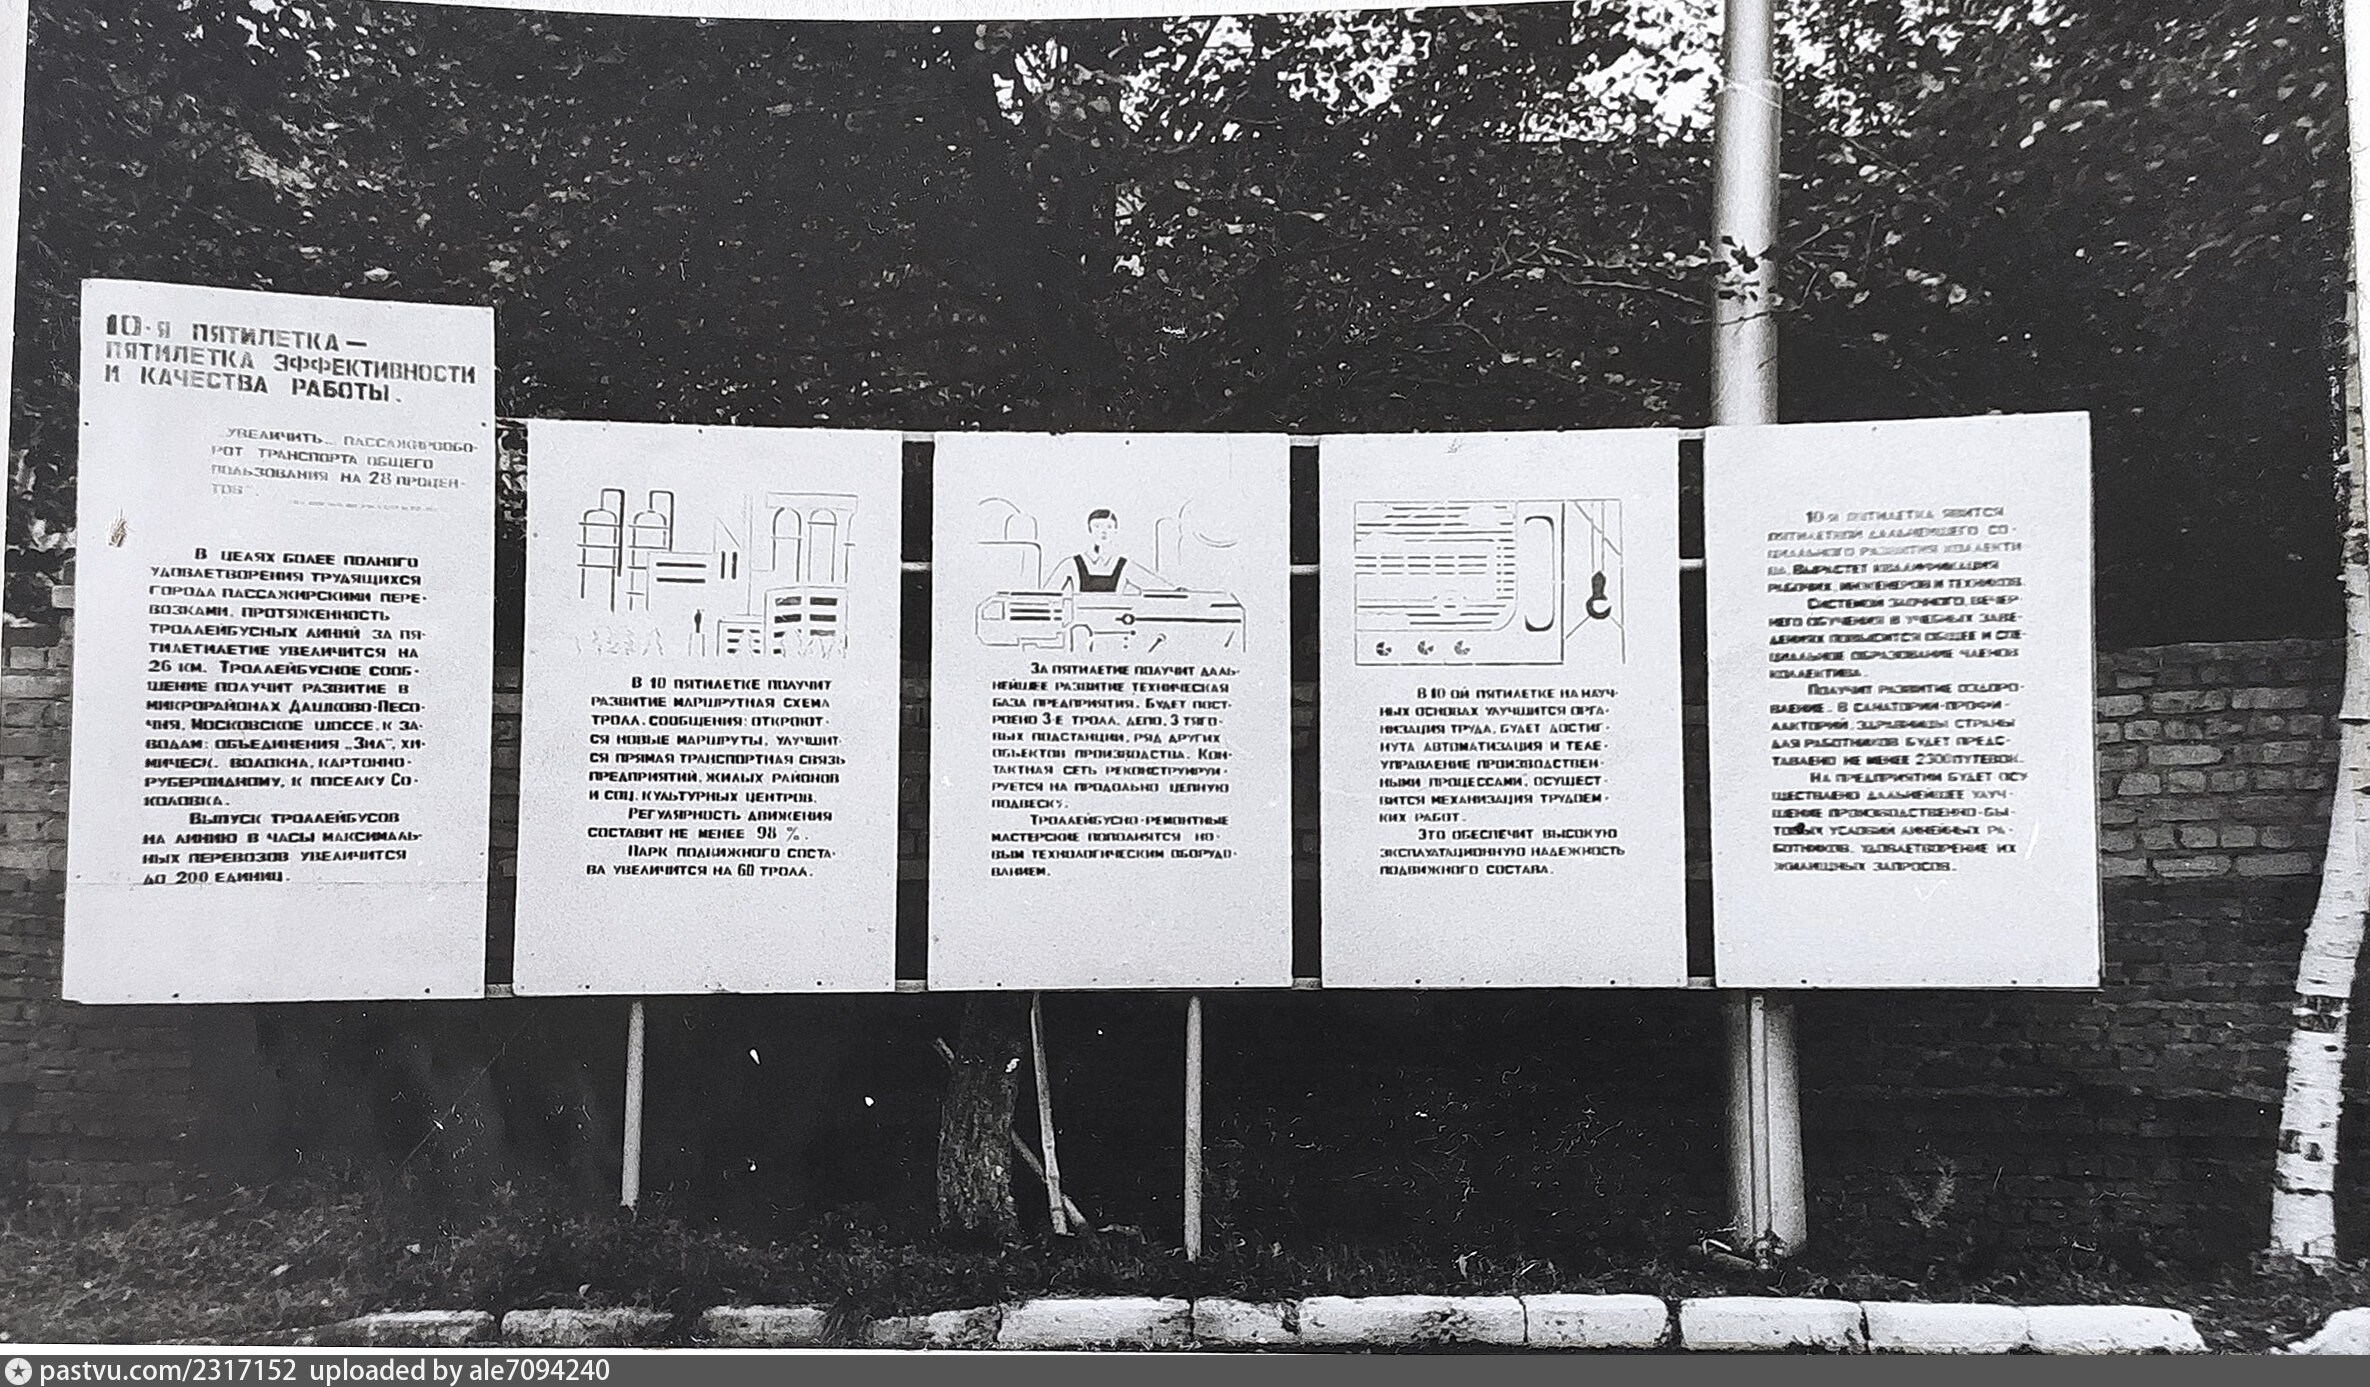 10-я ПЯТИЛЕТКА —
ПЯТИЛЕТКА ЭФФЕКТИВНОСТИ
И КАЧЕСТВА РАБОТЫ.
„УВЕЛИЧИТЬ... ПАССАЖИРООБО-
РОТ ТРАНСПОРТА ОБЩЕГО
ПОЛЬЗОВАНИЯ НА 28 ПРОЦЕН-
ТОВ".
В ЦЕЛЯХ БОЛЕЕ ПОЛНОГО
УДОВЛЕТВОРЕНИЯ ТРУДЯЩИХСЯ
ГОРОДА ПАССАЖИРСКИМИ ПЕРЕ-
ВОЗКАМИ, ПРОТЯЖЕННОСТЬ
ТРОЛЛЕЙБУСНЫХ ЛИНИЙ ЗА ПЯ-
ТИЛЕТИЛЕТИЕ УВЕЛИЧИТСЯ НА
26 КМ. ТРОЛЛЕЙБУСНОЕ СООБ-
ЩЕНИЕ ПОЛУЧИТ РАЗВИТИЕ В
МИКРОРАЙОНАХ ДАШКОВО-ПЕСО-
ЧНЯ, МОСКОВСКОЕ ШОССЕ, К ЗА-
ВОДАМ: ОБЪЕДИНЕНИЯ „ЗИЛ", ХИ-
МИЧЕСК. ВОЛОКНА, КАРТОННО-
РУБЕРОИДНОМУ, К ПОСЕЛКУ СО-
КОЛОВКА.
ВЫПУСК ТРОЛЛЕЙБУСОВ
НА ЛИНИЮ В ЧАСЫ МАКСИМАЛЬ-
НЫХ ПЕРЕВОЗОВ УВЕЛИЧИТСЯ
ДО 200 ЕДИНИЦ.
В 10 ПЯТИЛЕТКЕ ПОЛУЧИТ
РАЗВИТИЕ МАРШРУТНАЯ СХЕМА
ТРОЛЛ. СООБЩЕНИЯ: ОТКРОЮТ-
СЯ НОВЫЕ МАРШРУТЫ, УЛУЧШИТ-
СЯ ПРЯМАЯ ТРАНСПОРТНАЯ СВЯЗЬ
ПРЕДПРИЯТИЙ, ЖИЛЫХ РАЙОНОВ
И СОЦ. КУЛЬТУРНЫХ ЦЕНТРОВ.
РЕГУЛЯРНОСТЬ ДВИЖЕНИЯ
СОСТАВИТ НЕ МЕНЕЕ 98 %.
ПАРК ПОДВИЖНОГО СОСТА-
ВА УВЕЛИЧИТСЯ НА 60 ТРОЛЛ.
ЗА ПЯТИЛЕТИЕ ПОЛУЧИТ ДАЛЬ-
НЕЙШЕЕ РАЗВИТИЕ ТЕХНИЧЕСКАЯ
БАЗА ПРЕДПРИЯТИЯ. БУДЕТ ПОСТ-
РОЕНО 3-Е ТРОЛЛ. ДЕПО, 3 ТЯГО-
ВЫХ ПОДСТАНЦИИ, РЯД ДРУГИХ
ОБЪЕКТОВ ПРОИЗВОДСТВА. КОН-
ТАКТНАЯ СЕТЬ РЕКОНСТРУИРУИ-
РУЕТСЯ НА ПРОДОЛЬНО ЦЕПНУЮ
ПОДВЕСКУ.
ТРОЛЛЕЙБУСНО-РЕМОНТНЫЕ
МАСТЕРСКИЕ ПОПОЛНЯТСЯ НО-
ВЫМ ТЕХНОЛОГИЧЕСКИМ ОБОРУДО-
ВАНИЕМ.
В 10 ОЙ ПЯТИЛЕТКЕ НА НАУЧ-
НЫХ ОСНОВАХ УЛУЧШИТСЯ ОРГА-
НИЗАЦИЯ ТРУДА, БУДЕТ ДОСТИГ-
НУТА АВТОМАТИЗАЦИЯ И ТЕЛЕ-
УПРАВЛЕНИЕ ПРОИЗВОДСТВЕН-
НЫМИ ПРОЦЕССАМИ, ОСУЩЕСТ-
ВИТСЯ МЕХАНИЗАЦИЯ ТРУДОЕМ-
КИХ РАБОТ.
ЭТО ОБЕСПЕЧИТ ВЫСОКУЮ
ЭКСПЛУАТАЦИОННУЮ НАДЕЖНОСТЬ
ПОДВИЖНОГО СОСТАВА.
10-Я ПЯТИЛЕТКА ЯВИТСЯ
ПЯТИЛЕТКОЙ ДАЛЬНЕЙШЕГО СО-
ЦИАЛЬНОГО РАЗВИТИЯ КОЛЛЕКТИ
ВА. ВЫРАСТЕТ КВАЛИФИКАЦИЯ
РАБОЧИХ, ИНЖЕНЕРОВ И ТЕХНИКОВ.
СИСТЕМОЙ ЗАОЧНОГО, ВЕЧЕР-
НЕГО ОБУЧЕНИЯ В УЧЕБНЫХ ЗАВЕ-
ДЕНИЯХ ПОВЫСИТСЯ ОБЩЕЕ И СПЕ-
ЦИАЛЬНОЕ ОБРАЗОВАНИЕ ЧЛЕНОВ
КОЛЛЕКТИВА.
ПОЛУЧИТ РАЗВИТИЕ ОЗДОРО-
ВЛЕНИЕ. В САНАТОРИИ-ПРОФИ-
ЛАКТОРИЙ, ЗДРАВНИЦЫ СТРАНЫ
ДЛЯ РАБОТНИКОВ БУДЕТ ПРЕДС-
ТАВЛЕНО НЕ МЕНЕЕ 2300 ПУТЕВОК.
НА ПРЕДПРИЯТИИ БУДЕТ ОСУ
ЩЕСТВЛЕНО ДАЛЬНЕЙШЕЕ УЛУЧ-
ШЕНИЕ ПРОИЗВОДСТВЕННО-БЫ-
ТОВЫХ УСЛОВИЙ ЛИНЕЙНЫХ РА-
БОТНИКОВ, УДОВЛЕТВОРЕНИЕ ИХ
ЖИЛИЩНЫХ ЗАПРОСОВ.
pastvu.com/2317152 uploaded by ale7094240